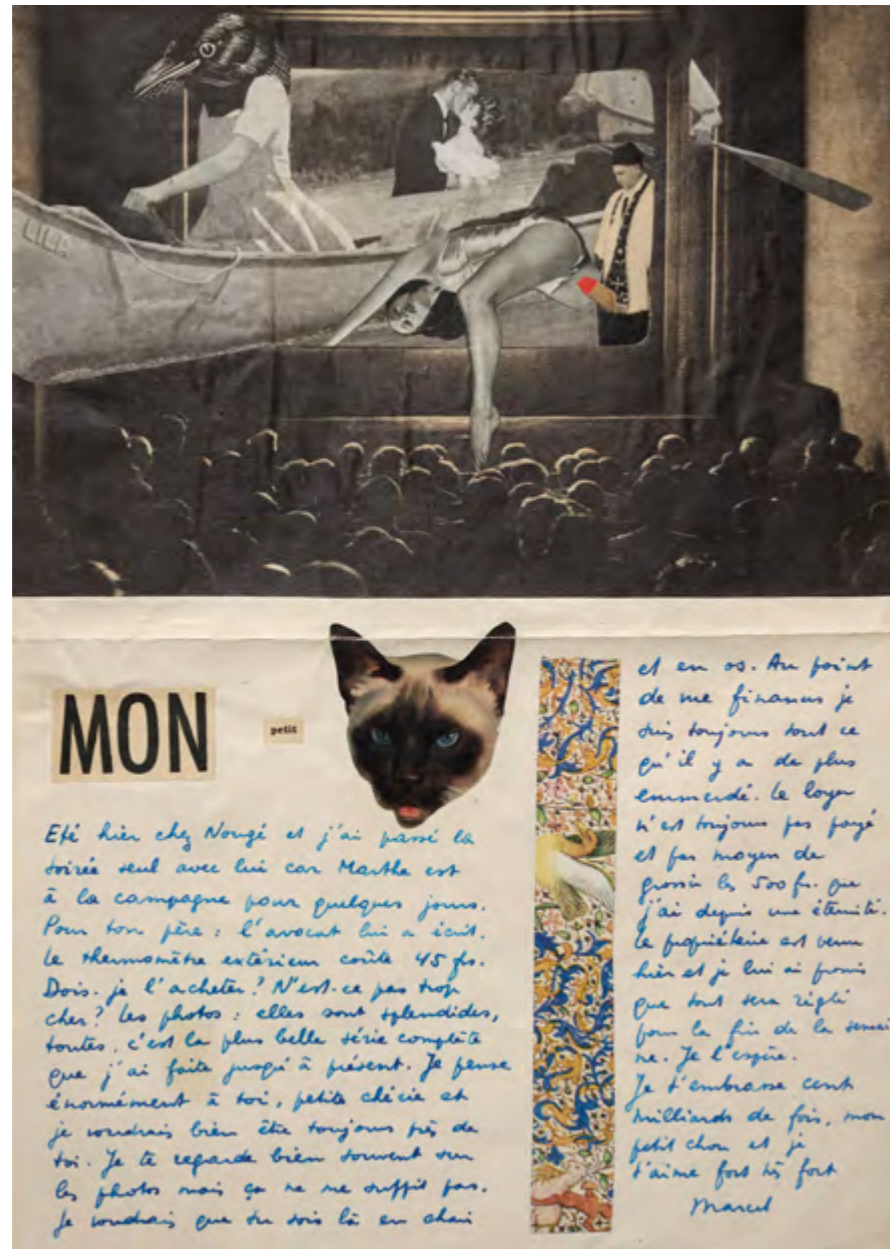 LILA
MON
petit
Eté hier chez Nougé et j'ai passé la
soirée seul avec lui car Marthe est
à la campagne pour quelques jours.
Pour ton père : l'avocat lui a écrit.
Le thermomètre extérieur coûte 45 frs.
Dois-je l'acheter? N'est-ce pas trop
cher? Les photos : elles sont splendides,
toutes, c'est la plus belle série complète
que j'ai faite jusqu'à présent. Je pense
énormément à toi, petite chérie et
je voudrais bien être toujours près de
toi. Je te regarde bien souvent sur
les photos mais ça ne me suffit pas.
Je voudrais que tu sois là en chair
et en os. Au point
de vue finances je
suis toujours tout ce
qu'il y a de plus
emmerdé. Le loyer
n'est toujours pas payé
et pas moyen de
grossir les 500 frs. que
j'ai depuis une éternité.
Le propriétaire est venu
hier et je lui ai promis
que tout sera réglé
pour la fin de la semai
ne. Je l'espère.
Je t'embrasse cent
milliards de fois, mon
petit chou et je
t'aime fort très fort
Marcel